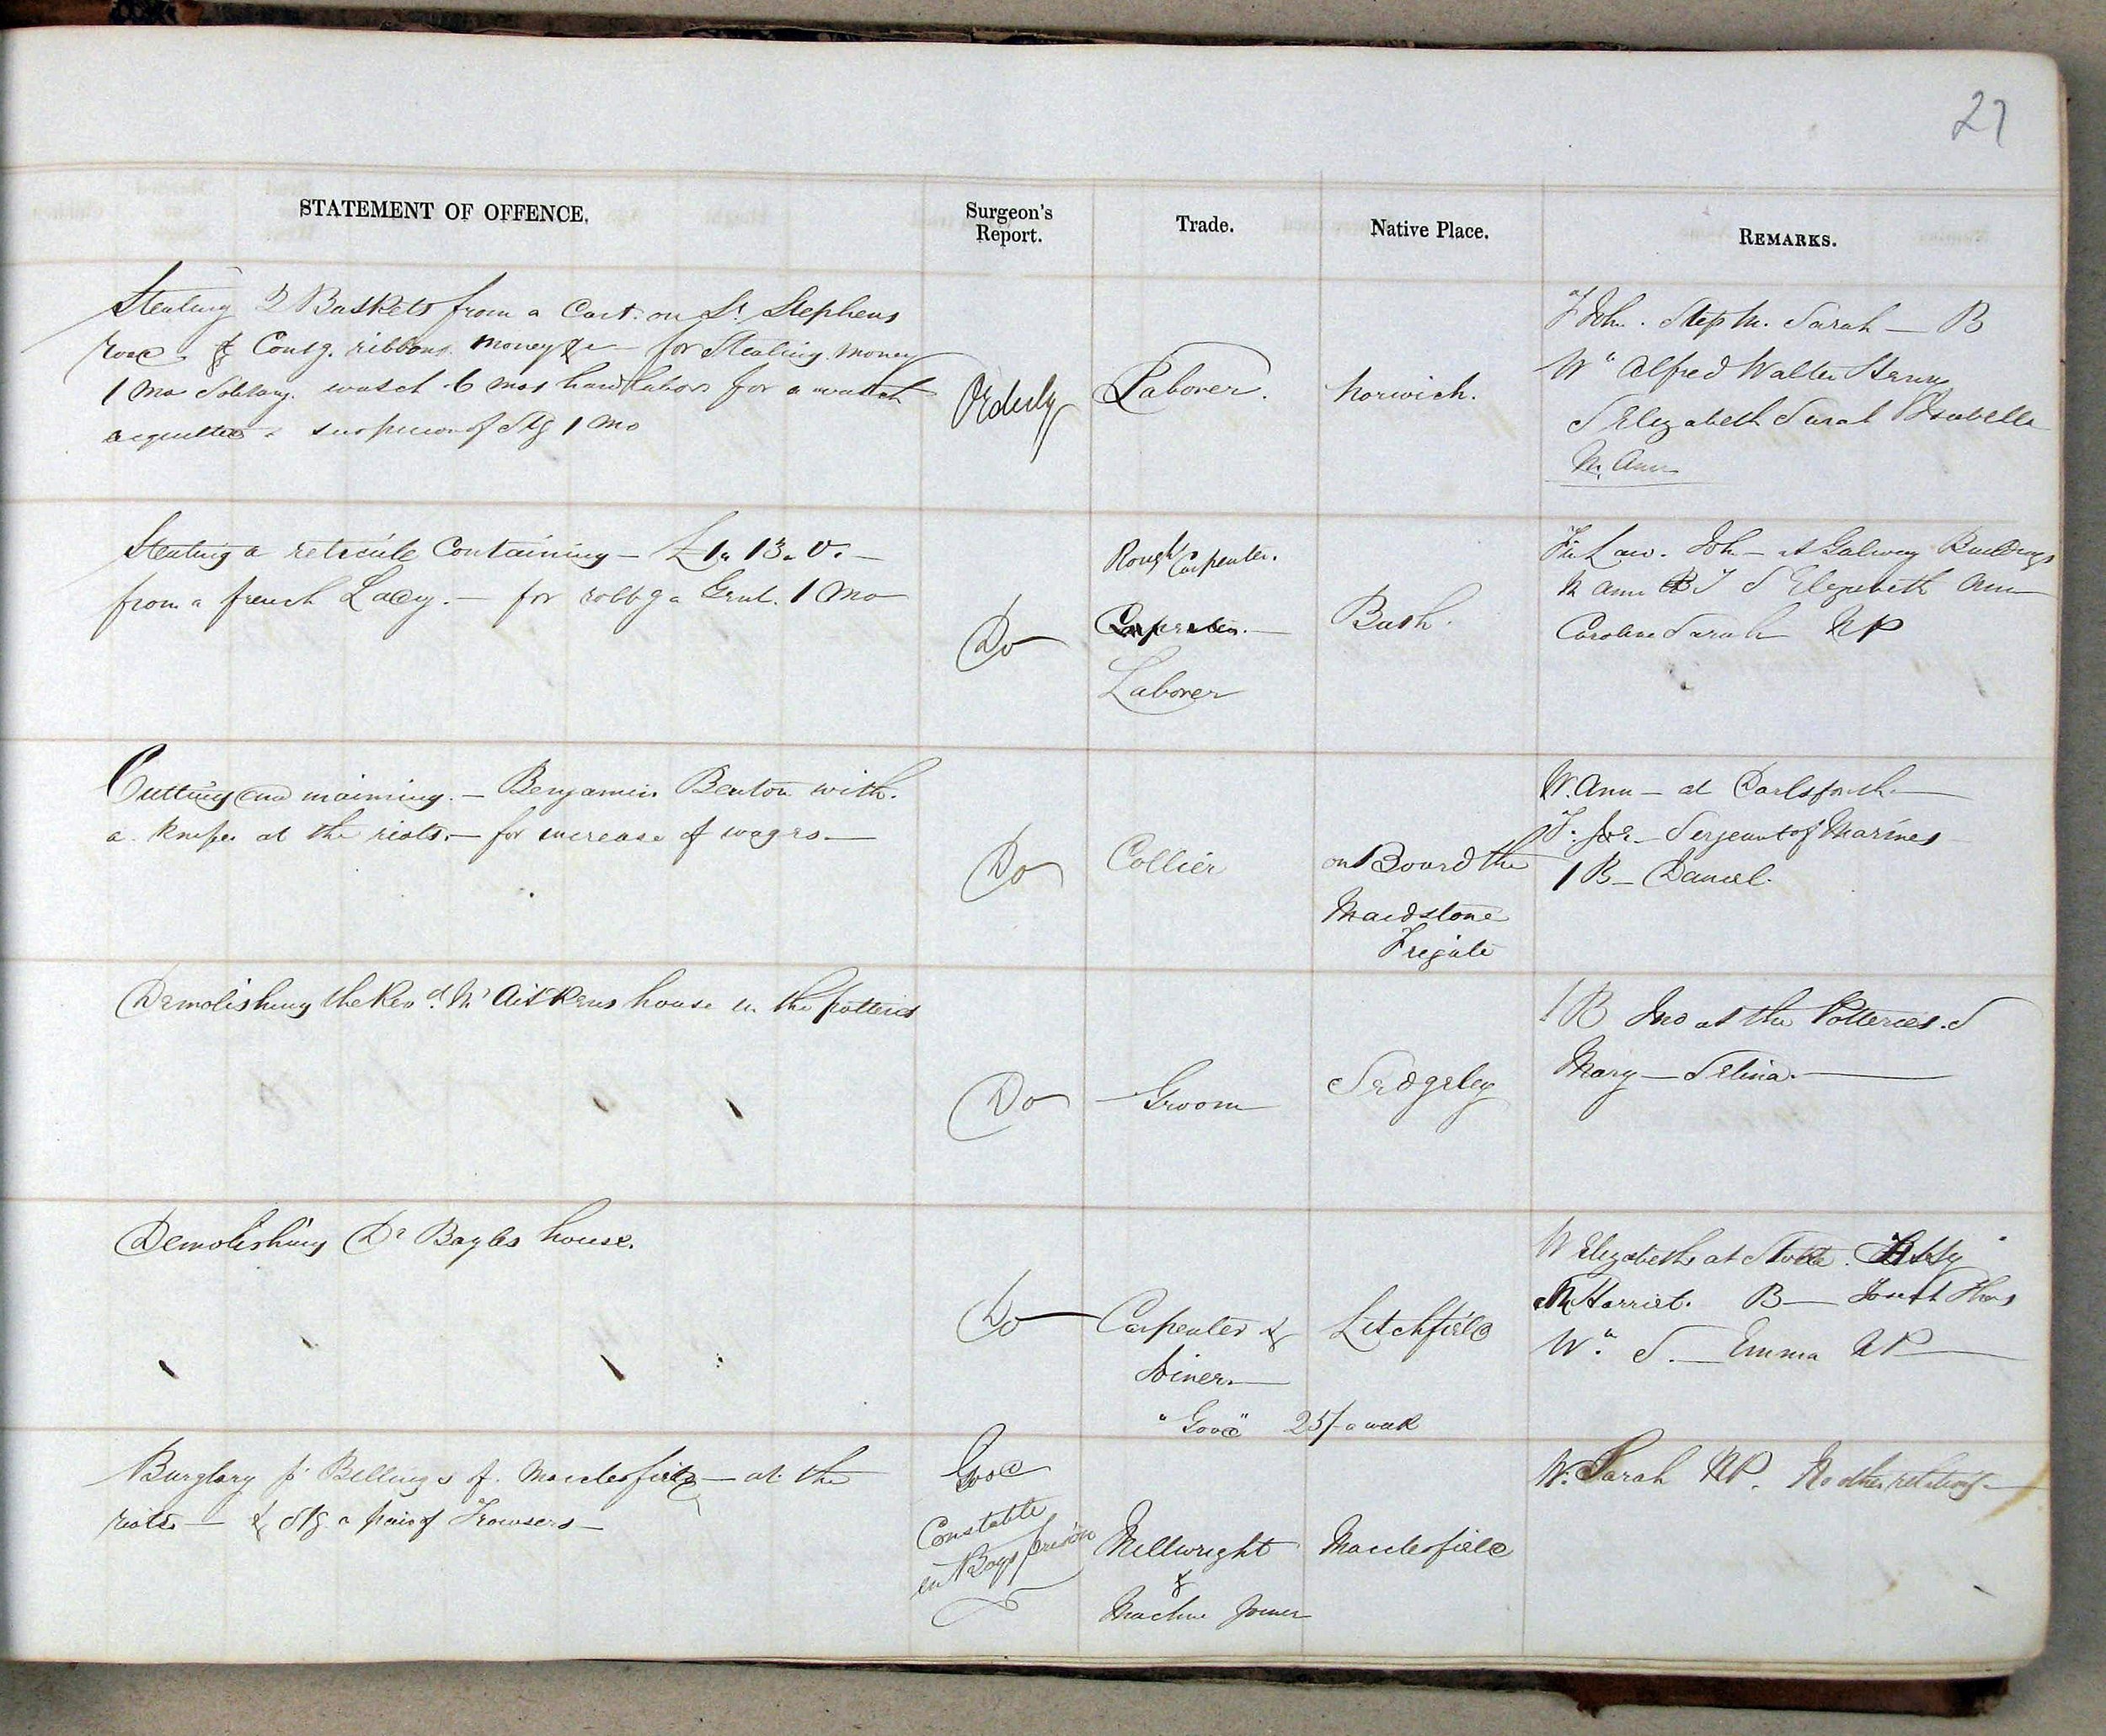 27
STATEMENT OF OFFENCE.
Surgeon's
Report.
Trade.
Native Place.
REMARKS.
Stealing 2 Baskets from a Cart on St Stephens
road & Contg. ribbons money &c — for Stealing money
1 Mo Solitary. watch 6 mos hard labor for a watch
acquitted & suspicion of Stg 1 Mo
Orderly
Laborer.
Norwich.
F John. Step M. Sarah — B
Wm Alfred Walter Henry
S Elizabeth Sarah Isabella
M. Ann
Stealing a reticule Containing — £1.. 13.. 0. —
from a french Lady. — for robbg a Gent. 1 Mo
Do
Rough Carpenter.
Carpenter. —
Laborer
Bath.
F in Law. Joh — at Galway Buildings
M Ann S Elizabeth Ann
Caroline Sarah NP
Cutting and maiming. — Benjamin Benton with.
a. knife. at the riots. — for increase of wages. —
Do
Collier
on Board the
Maidstone
Frigate
W. Ann — at
F. Serjeant of Marines
1 B — Daniel.
Demolishing the Revd. Mr Aitkens house in the potteries
Do
Groom
Sedgeley
1 B Jno at the Potteries. S
Mary — Selina. —
Demolishing Dr Bayles house.
Do
Carpenter &
Joiner. —
"Good" 25/- a week
Litchfield
W Elizabeth at Stoke.
M Harriet. B — Thos
Wm. S. — Emma NP —
Burglary Billings of. Macclesfield — at the
riots — & Stg. a pair of Trowsers —
Good
Constable
in Boys prison
Millwright
&
Machine Joiner
Macclesfield
W. Sarah NP. No other relations —